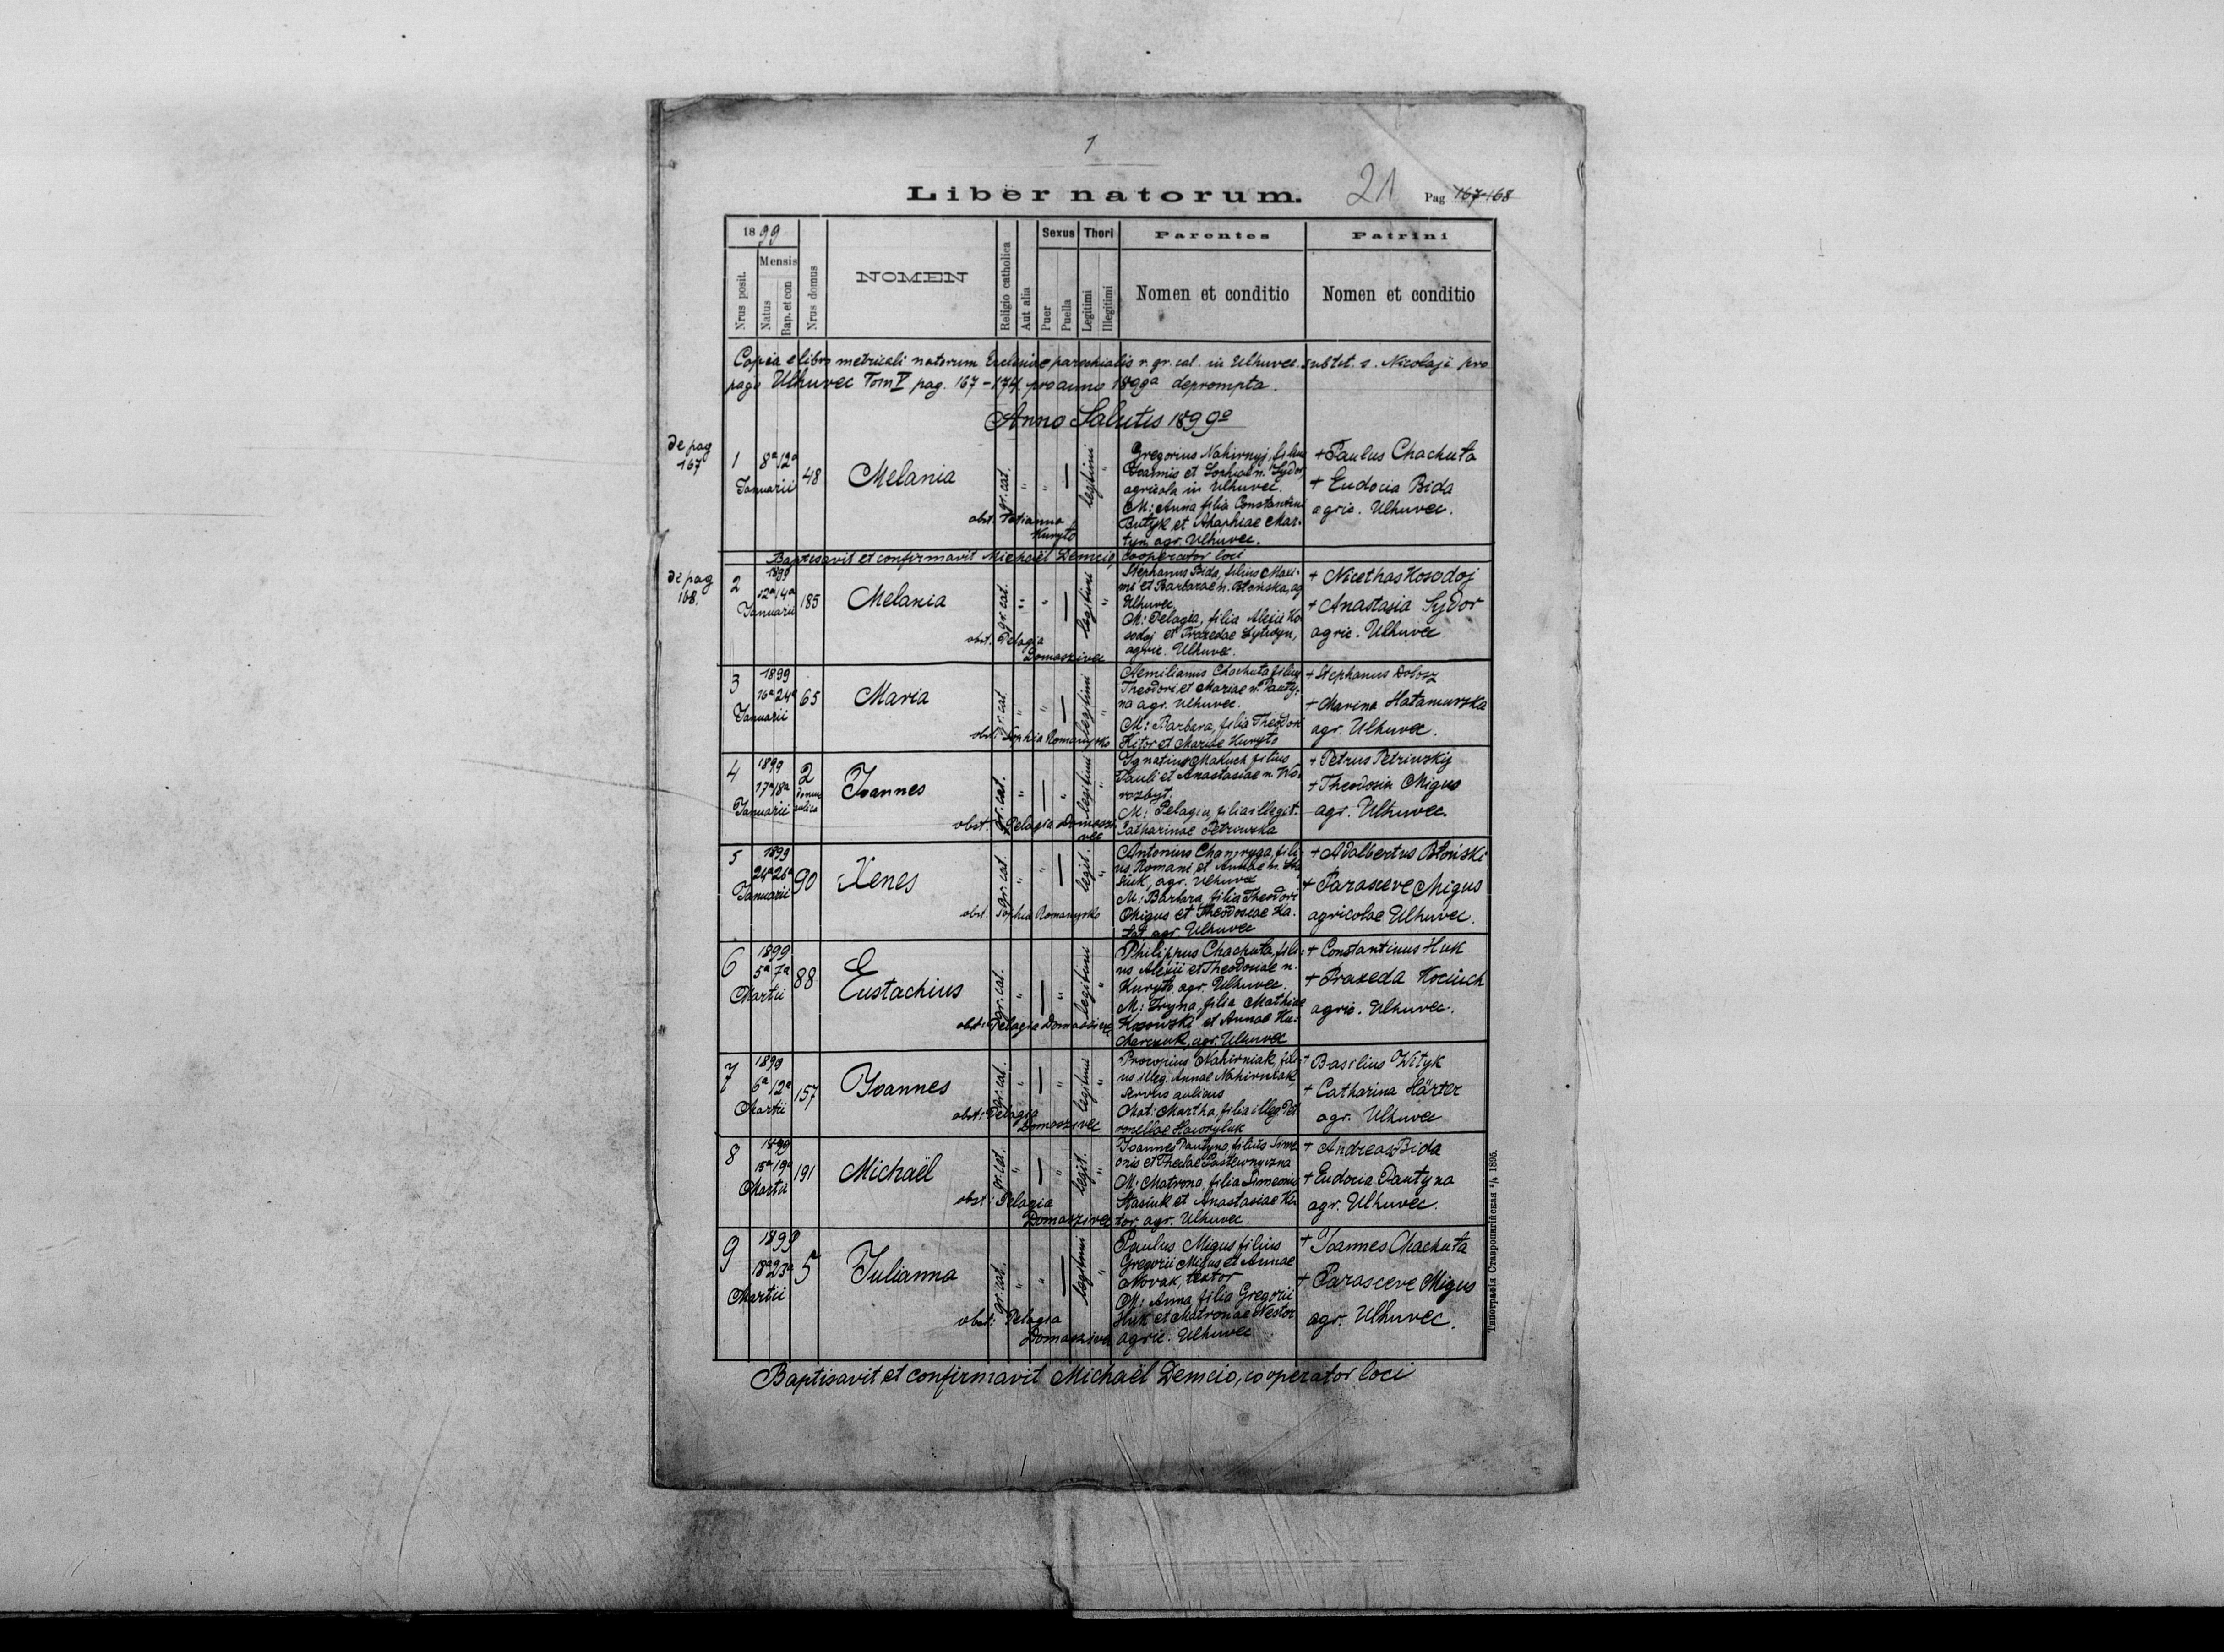 1
Liber natorum.
21
Pag 167-168
1899
Mensis
Nrus posit.
Natus
Bap. et con
Nrus domus
NOMEN
Religio catholica
Aut alia
Sexus
Puer
Puella
Thori
Legitimi
Illegitimi
Parentes
Nomen et conditio
Patrini
Nomen et conditio
Copia e libro metricali natorum Ecclesiae parochialis r. gr. cat. in Ulhuvec subtit. s. Nicolaji pro
pago Ulhuvec Tom V pag. 167-174 pro anno 1899a deprompta.
Anno Salutis 1899o
de pag
167
1
8a 12a
Januarii
48
Melania
gr. cat.
"
"
—
legitimi
"
obst. Tatianna
Kuryto
Gregorius Nahirnyj, filius
Joannis et Sophiae n. Sydor,
agricola in Ulhuvec.
M: Anna filia Constantini
Butyk et Ahaphiae Mar-
tyn agr. Ulhuvec.
+ Paulus Chachuta
+ Eudocia Bida
agric. Ulhuvec.
Baptisavit et confirmavit Michaël Demcio, cooperator loci
de pag
168.
2
1899
12a 14a
Januarii
185
Melania
gr. cat.
"
"
—
legitimi
"
obst. Pelagia
Domaszivec
Stephanus Bida, filius Maxi-
mi et Barbarae n. Błońska, ag
Ulhuvec.
M: Pelagia, filia Alexii Ko
sodoj et Praxedae Lytwyn,
agric. Ulhuvec.
+ Nicethas Kosodoj
+ Anastasia Sydor
agric. Ulhuvec
3
1899
16a 24a
Januarii
65
Maria
gr. cat.
"
"
—
legitimi
"
obst: Sophia Romanyszko
Aemilianus Chachuta filius
Theodori et Mariae n. Pauty-
na agr. Ulhuvec.
M: Barbara, filia Theodori
Kitor et Mariae Kuryto
+ Stephanus Dołosz
+ Marina Hatamuszka
agr. Ulhuvec.
4
1899
17a 18a
Januarii
2
domus
aulica
Joannes
gr. cat.
"
—
"
legitimi
"
obst. Pelagia Domaszi
vec
Ignatius Makuch filius
Pauli et Anastasiae n. Wo-
rozbyt.
M: Pelagia, filia illegit.
Catharinae Petrowska
+ Petrus Petriwskij
+ Theodosia Migus
agr. Ulhuvec.
5
1899
24a 26a
Januarii
90
Xenes
gr. cat
"
"
—
legit.
"
obst. Sophia Romanyszko
us Romani et Annae n. Sta
siuk, agr. Ulhuvec
M: Barbara, filia Theodori
Migus et Theodosiae Ka-
agr Ulhuvec
+ Adalbertus Błoński
+ Parasceve Migus
agricolae Ulhuvec.
6
1899
5a 7a
Martii
88
Eustachius
gr. cat.
"
—
"
legitimi
"
obst: Pelagia Domaszivec
Philippus Chachuta, fili-
us Alexii et Theodosiae n.
Kuryto agr. Ulhuvec.
M: Iryna, filia Mathiae
Kosowski et Annae Ku-
charczuk, agr. Ulhuvec
+ Constantinus Huk
+ Praxeda Kociuch
agric. Ulhuvec.
7
1899
6a 12a
Martii
157
Joannes
gr. cat.
"
—
"
legitimi
"
obst: Pelagia
Domaszivec
Procopius Nahirniak, fili-
us illeg. Annae Nahirniak,
servus aulicus
Mat: Martha, filia illeg Pet
ronellae Hawryluk
+ Basilius Wityk
+ Catharina Härter
agr. Ulhuvec
8
1899
15a 19a
Martii
191
Michaël
gr. cat.
"
—
"
legit.
"
obst: Pelagia
Domaszivec
Joannes Pautyna, filius Sime
onis et Theclae Pastewnyczna
M: Matrona, filia Simeonis
Stasiuk et Anastasiae Ki-
tor agr. Ulhuvec.
+ Andreas Bida
+ Eudocia Pautyna
agr. Ulhuvec.
9
1899
18a 23a
Martii
5
Julianna
gr. cat.
"
"
—
legitimi
"
obst: Pelagia
Domaszivec
Paulus Migus filius
Gregorii Migus et Annae
Novak, textor
M: Anna filia Gregorii
Huk et Matronae Nestor
agric. Ulhuvec
+ Joannes Chachuta
+ Parasceve Migus
agr. Ulhuvec.
Baptisavit et confirmavit Michaël Demcio, cooperator loci
Типографія Ставропигійская 1895.